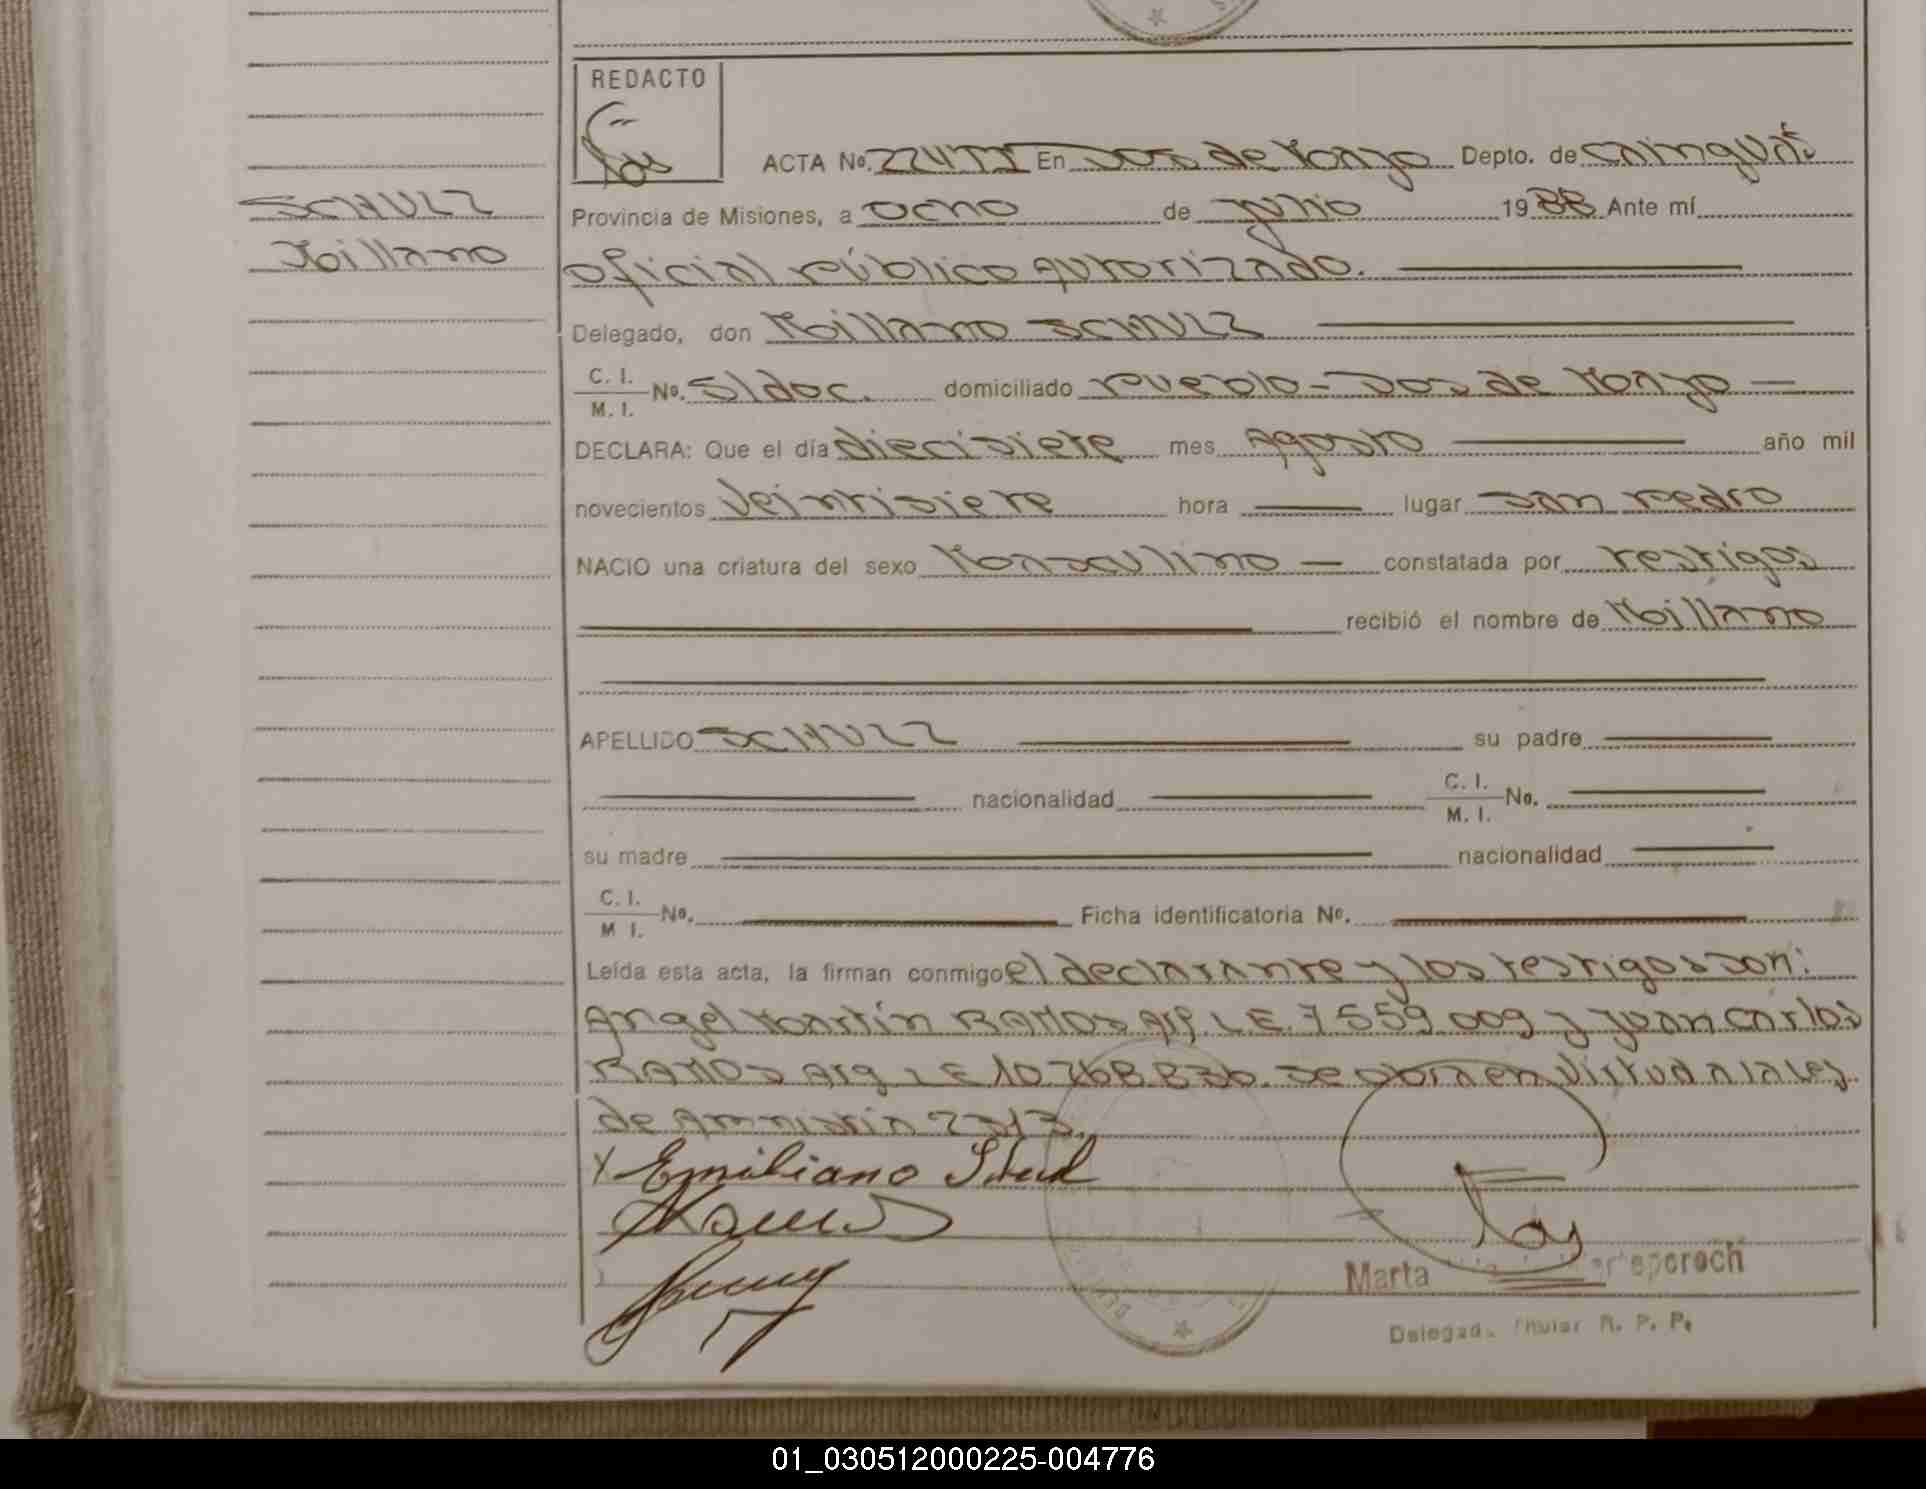 REDACTO
ACTA No. 224 TI En Dos de Mayo Depto. de Cainguás
SCHULZ
Provincia de Misiones, a ocho de julio 1988 Ante mí
Millano
oficial público autorizado.
Delegado, don Millano SCHULZ
C. I.
M. I. No. S/doc. domiciliado Pueblo - Dos de Mayo
DECLARA: Que el día diecisiete mes Agosto año mil
novecientos veintisiete hora lugar San Pedro
NACIO una criatura del sexo Masculino constatada por testigos
recibió el nombre de Millano
APELLIDO SCHULZ su padre
nacionalidad C. I.
M. I. No.
su madre nacionalidad
C. I.
M I. No. Ficha identificatoria No.
Leída esta acta, la firman conmigo el declarante y los testigos son:
Angel Martín RAMOS Arg. L E 7 559 009 y Juan Carlos
RAMOS Arg L E 10 768 836. Se labra en virtud a la Ley
de Amnistía 2313.
X Emiliano
Marta
Delegad. Titular R. P. P.
01_030512000225-004776